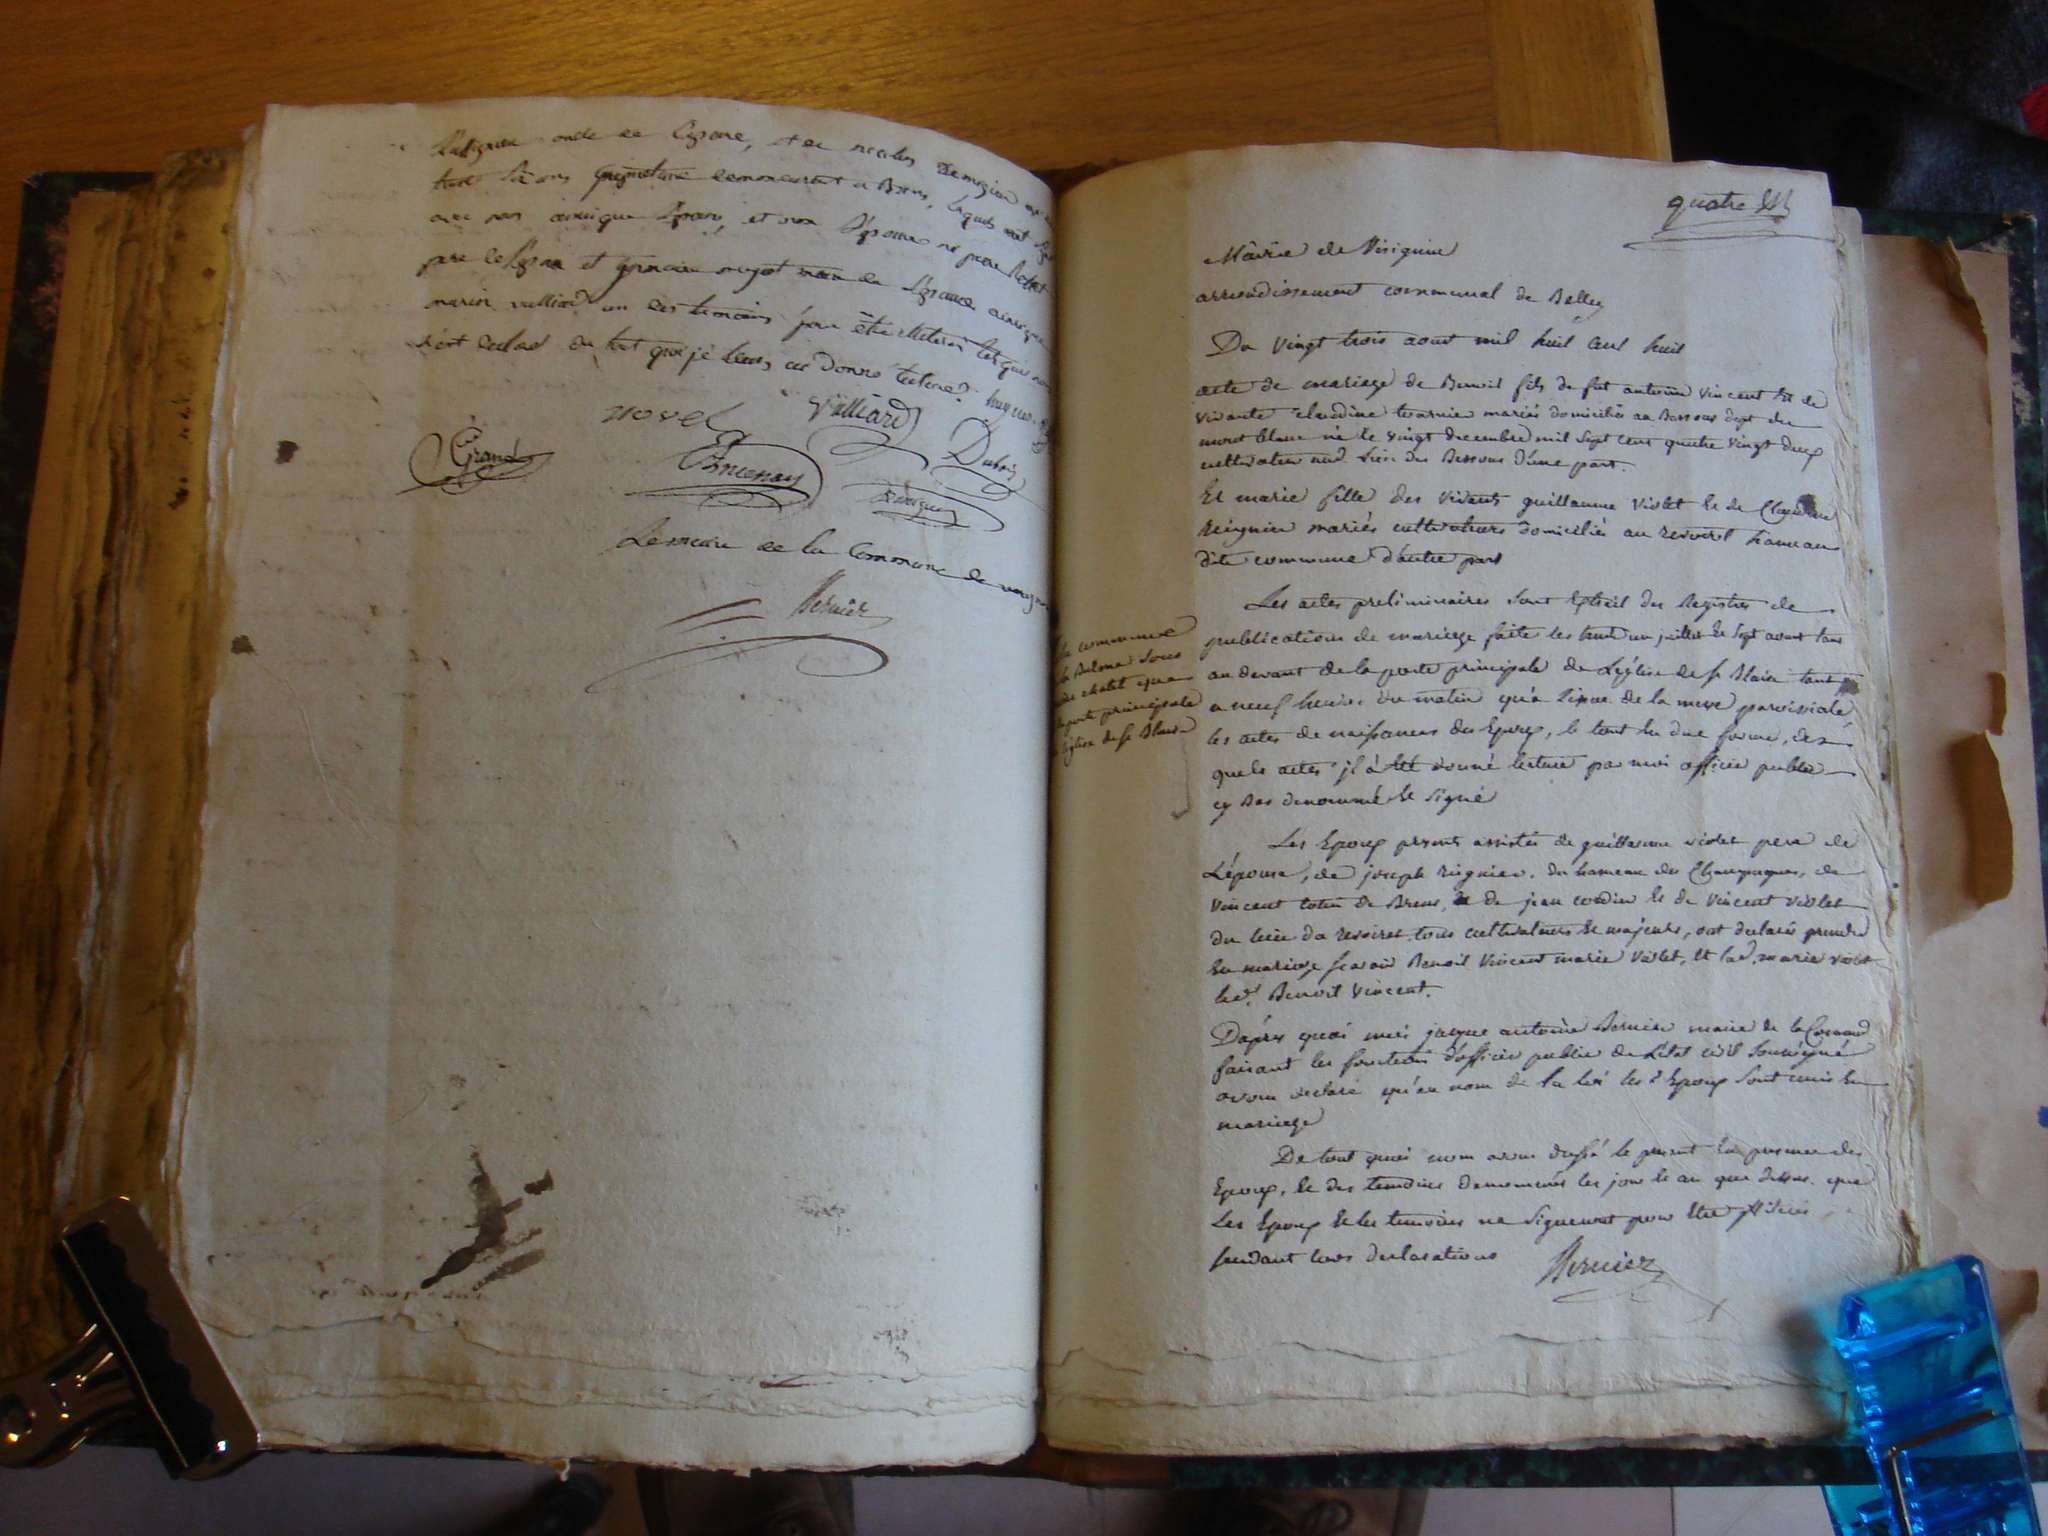 oncle de l'épouse, et de nicolas
propriétaire demeurant a Brens, lesquels ont signé
avec nous ainsique l'épouse, et non l'épouse ni pierre
pere de l'épouse et mere de l'épouse ainsique
marin valliard un des temoins pour être illiteres tel qui nous
l'ont declaré du tout quoi je leurs ai Donné lecture.
novel valliard
Grand Dubois
Le maire de la Commune de
Bernier
quatre
Mairie de Virignin
arrondissement communal de Belley
Du vingt trois aout mil huil cens huil
acte de mariage de Benoit fils de fut antoine vincent et de
vivante claudine tournier mariés domiciliés au Bessons dept du
mont blanc né le vingt decembre mil sept cens quatre vingt deux
cultivateur aud. lieu des Bessons d'une part.
Et marie fille des vivants guillaume violet et de Claudine
Reignier mariés cultivateurs domiciliés au revoiret hameau
dite commune d'autre part
Les actes preliminaires sont Extrait des Registres de
publications de mariage faite les trente un juillet et sept aout tant
au devant de la porte principale de L'eglise de st Blaise tant
a neuf heures du matin qu'a l'issue de la messe paroissiale
les actes de naissances des Epoux, le tout en due forme, des
quels actes il a été donné lecture par moi officier public
cy Bas denommé et signé
la commune
la Balme sous
pierre chatel que
la porte principale
l'eglise de st Blaise
Les Epoux present assistés de guillaume violet pere de
L'épouse, de joseph reignier du hameau des Champagnes, de
vincent de Brens, et de jean cordin et de vincent violet
du lieu du revoiret tous cultivateurs et majeurs, ont declarés prendre
en mariage scavoir Benoit vincent marie violet, et lad. marie violet
led. Benoit vincent.
D'après quoi moi jacque antoine Bernier maire de la
faisant les fonctions d'officier public de L'état civil soussigné
avons declaré qu'au nom de la loi les d Epoux sont unis en
mariage
De tout quoi nous avons dressé le present en presence des
Epoux, et des temoins denommés les jour et an que dessus. que
Les Epoux et les temoins ne signeront pour etre illiteres
suivant leurs declarations
Bernier